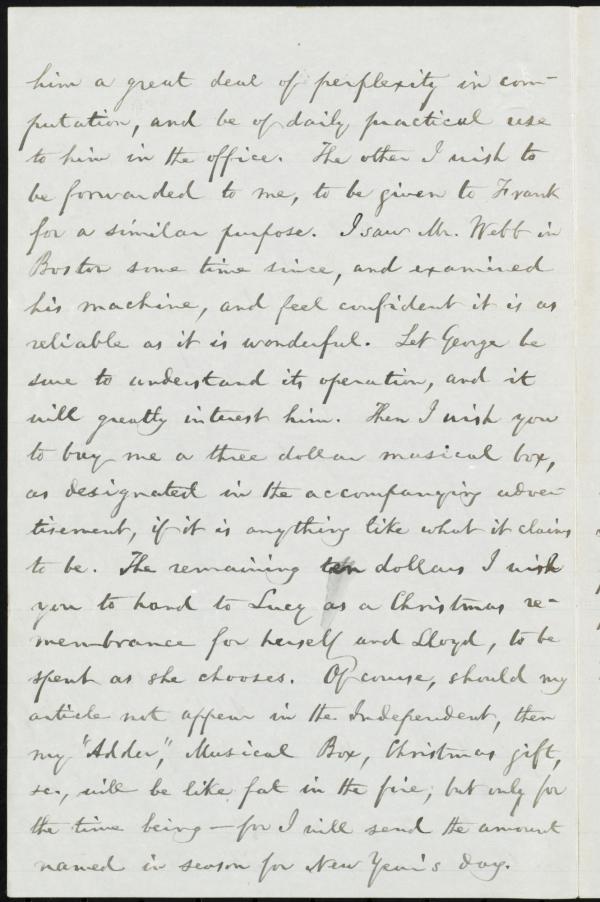 him a great deal of perplexity in com-
putation, and be of daily practical use
to him in the office. The other I wish to
be forwarded to me, to be given to Frank
for a similar purpose. I saw Mr. Webb in
Boston some time since, and examined
his machine, and feel confident it is as
reliable as it is wonderful. Let George be
sure to understand its operation, and it
will greatly interest him. Then I wish you
to buy me a three dollar musical box,
as designated in the accompanying adver-
tisement, if it is anything like what it claims
to be. The remaining ten dollars I wish
you to hand to Lucy as a Christmas re-
membrance for herself and Lloyd, to be
spent as she chooses. Of course, should my
article not appear in the Independent, then
my "Adder," Musical Box, Christmas gift,
&c., will be like fat in the fire; but only for
the time being—for I will send the amount
named in season for New Year's day.